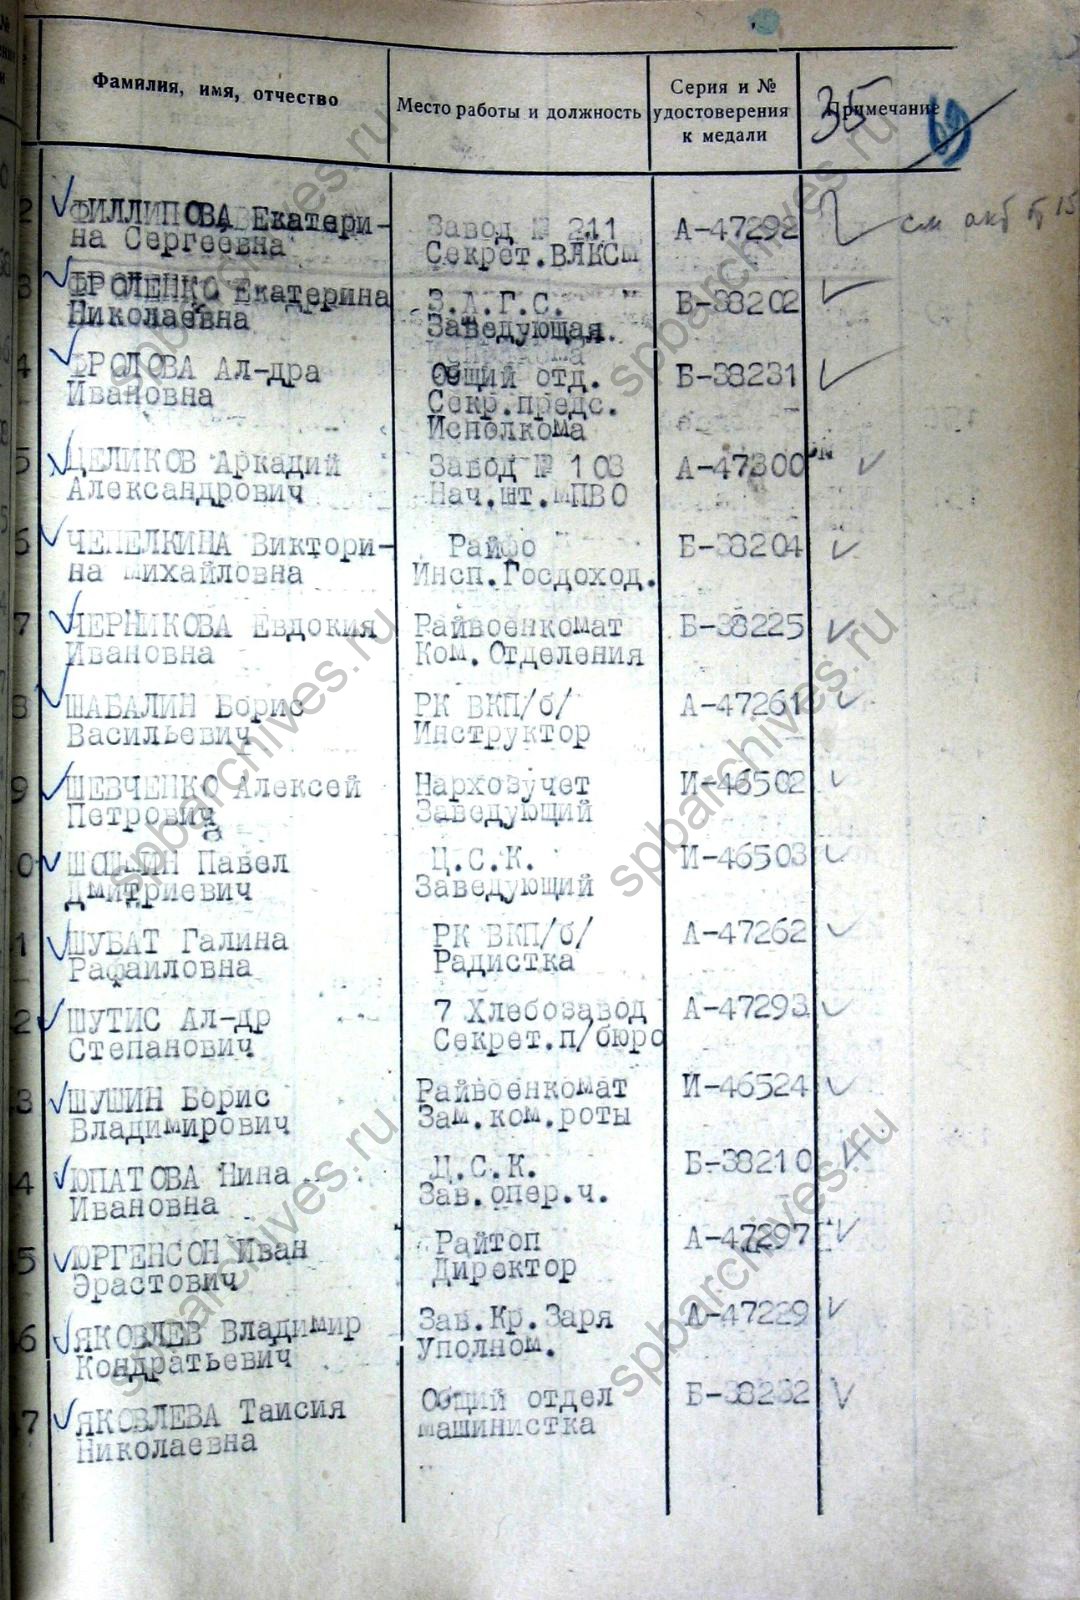 Фамилия, имя, отчество
Место работы и должность
Серия и №
удостоверения
к медали
Примечание
35
2 ФИЛЛИПОВА Екатери- Завод № 211 А-47292 см акт
на Сергеевна Секрет.ВЛКСМ
3 ФРОЛЕНКО Екатерина З.А.Г.С. Б-38202
Николаевна Заведующая.
4 ФРОЛОВА Ал-дра Общий отд. Б-38231
Ивановна Секр.предс.
Исполкома
5 ЦЕЛИКОВ Аркадий Завод № 103 А-47300
Александрович Нач.шт.МПВО
6 ЧЕПЕЛКИНА Виктори- Райфо Б-38204
на Михайловна Инсп.Госдоход.
7 ЧЕРНИКОВА Евдокия Райвоенкомат Б-38225
Ивановна Ком.Отделения
8 ШАБАЛИН Борис РК ВКП/б/ А-47261
Васильевич Инструктор
9 ШЕВЧЕНКО Алексей Нархозучет И-46502
Петрович Заведующий
0 Павел Ц.С.К. И-46503
Дмитриевич Заведующий
1 ШУБАТ Галина РК ВКП/б/ А-47262
Рафаиловна Радистка
2 ШУТИС Ал-др 7 Хлебозавод А-47293
Степанович Секрет.п/бюро
3 ШУШИН Борис Райвоенкомат И-46524
Владимирович Зам.ком.роты
4 ЮПАТОВА Нина Ц.С.К. Б-38210
Ивановна Зав.опер.ч.
5 ЮРГЕНСОН Иван Райтоп А-47297
Эрастович Директор
6 ЯКОВЛЕВ Владимир Зав.Кр.Заря А-47229
Кондратьевич Уполном.
7 ЯКОВЛЕВА Таисия Общий отдел Б-38232
Николаевна машинистка
spbarchives.ru
spbarchives.ru
spbarchives.ru
spbarchives.ru
spbarchives.ru
spbarchives.ru